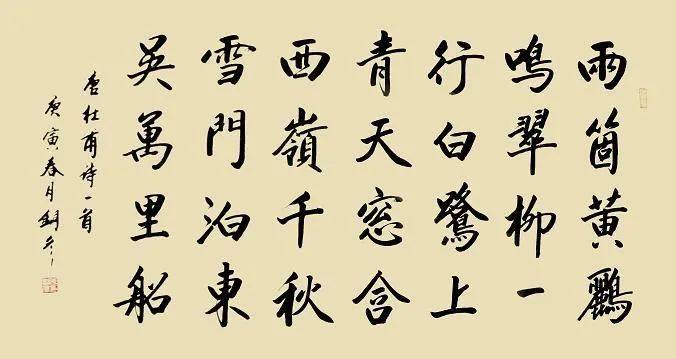 兩箇黃鸝
鳴翠柳一
行白鷺上
青天窓含
西嶺千秋
雪門泊東
吳萬里船
唐杜甫詩一首
庚寅春月